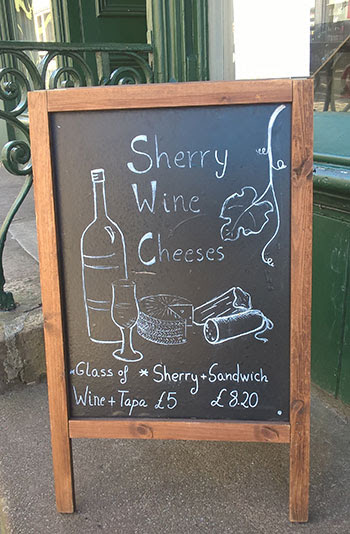 Sherry
Wine
Cheeses
Glass of * Sherry + Sandwich
Wine + Tapa £5 £8.20